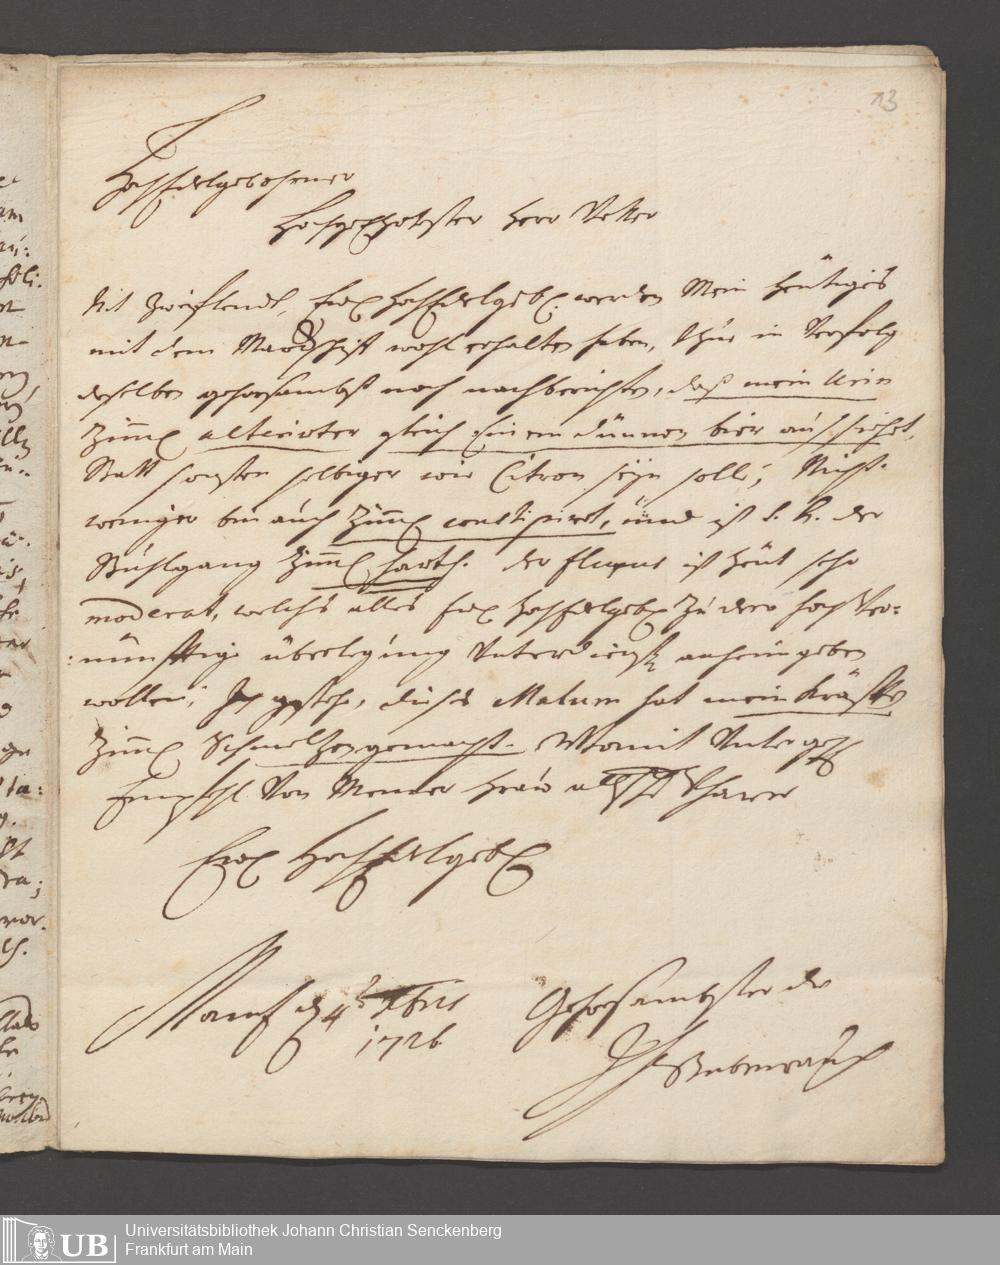 13
HochEdelgebohrner
Hochgeehrtester Herr Vetter
Nit zweiflendt, Ew. HochEdelgeb. werden Mein heütiges
mit dem Marckschiff wohl erhalten haben, thue in Verfolg
deßelben gehorsambst noch nachberichten, daß mein Urin
Ziml. alterirter gleich einem dünnen bier außsiehet,
Statt sonsten selbiger wie Citron seyn solle; Nicht
weniger bin auch Ziml. constipiret, und ist S. h. der
Stuhlgang Ziml. harth. der fluxus ist heüt sehr
moderat, welches alles Ew. HochEdelgeb. zu dero hoch Ver:
:nünfftige überlegung Unterdienstl. anheimgeben
wollen; Ich gesteh, dießes Malum hat mein Kräfften
Ziml. Schmeltzen gemacht. Womit Unter
Empfehl. Von Meiner Frau
Ew. HochEdelgeb.
d. 4t. Xbris
1726
Gehorsambster dr
Universitätsbibliothek Johann Christian Senckenberg
Frankfurt am Main
UB